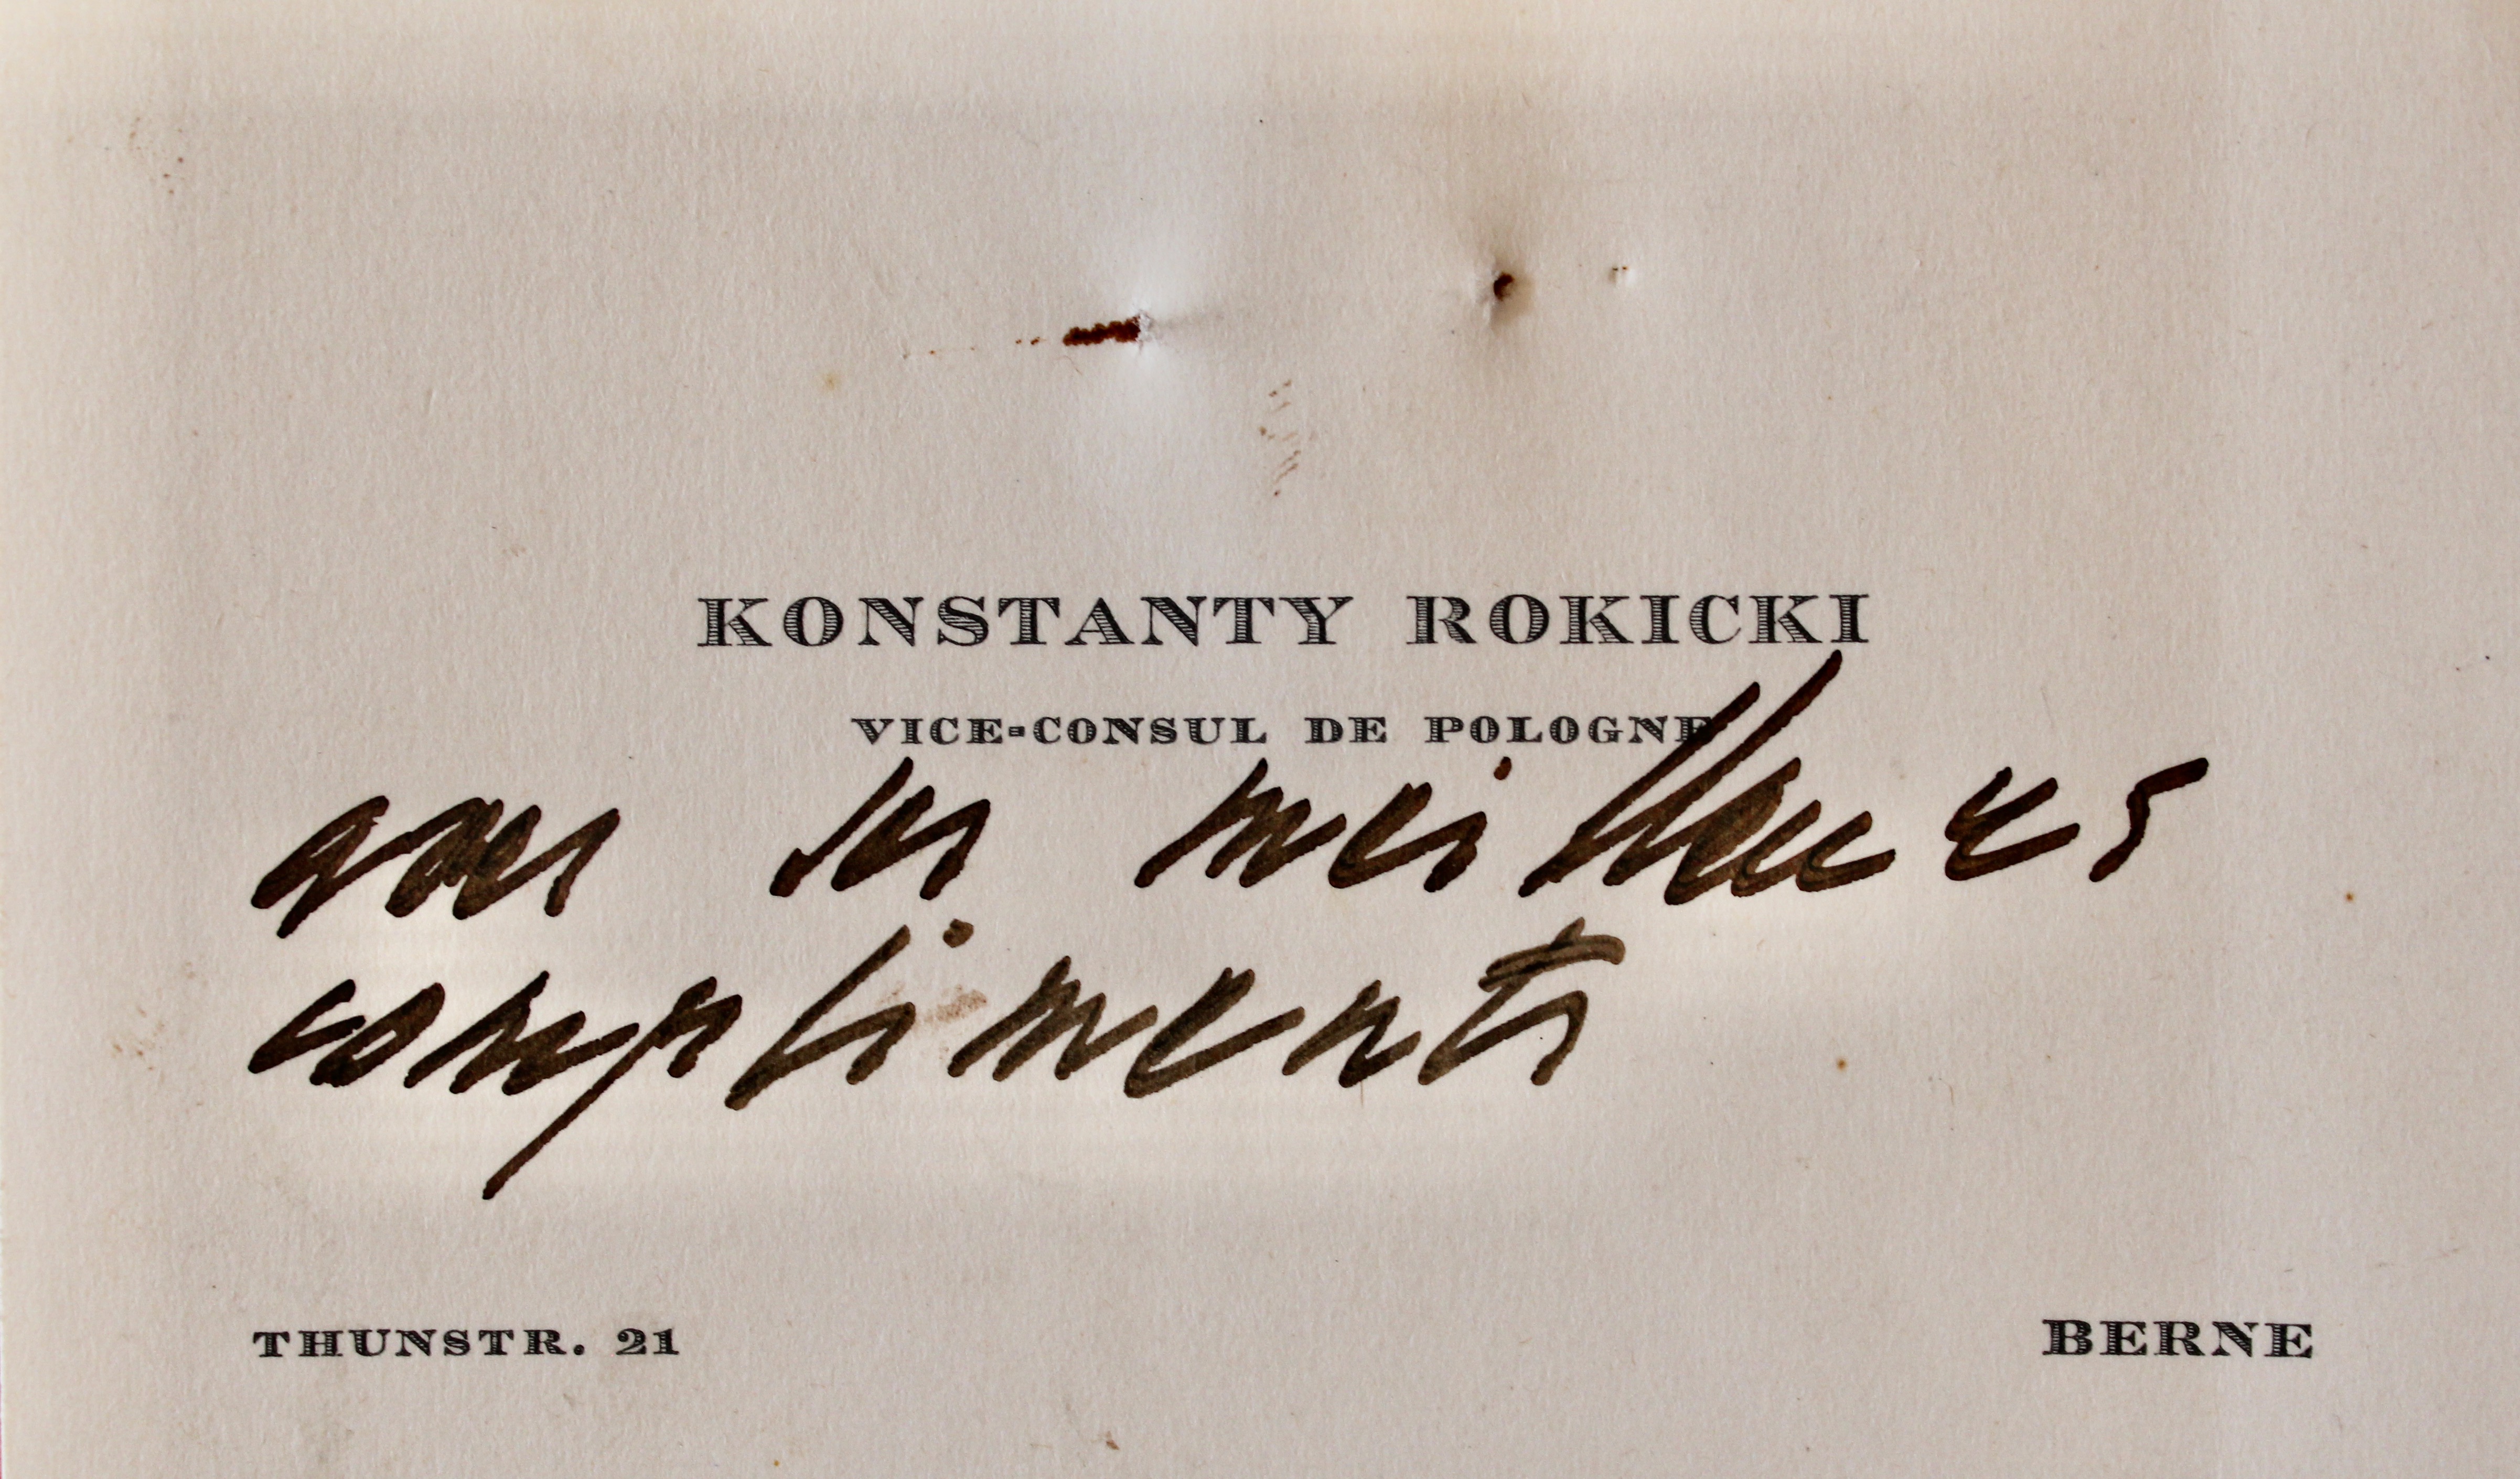 KONSTANTY ROKICKI
VICE-CONSUL DE POLOGNE
avec ses meilleurs
compliments
THUNSTR. 21
BERNE